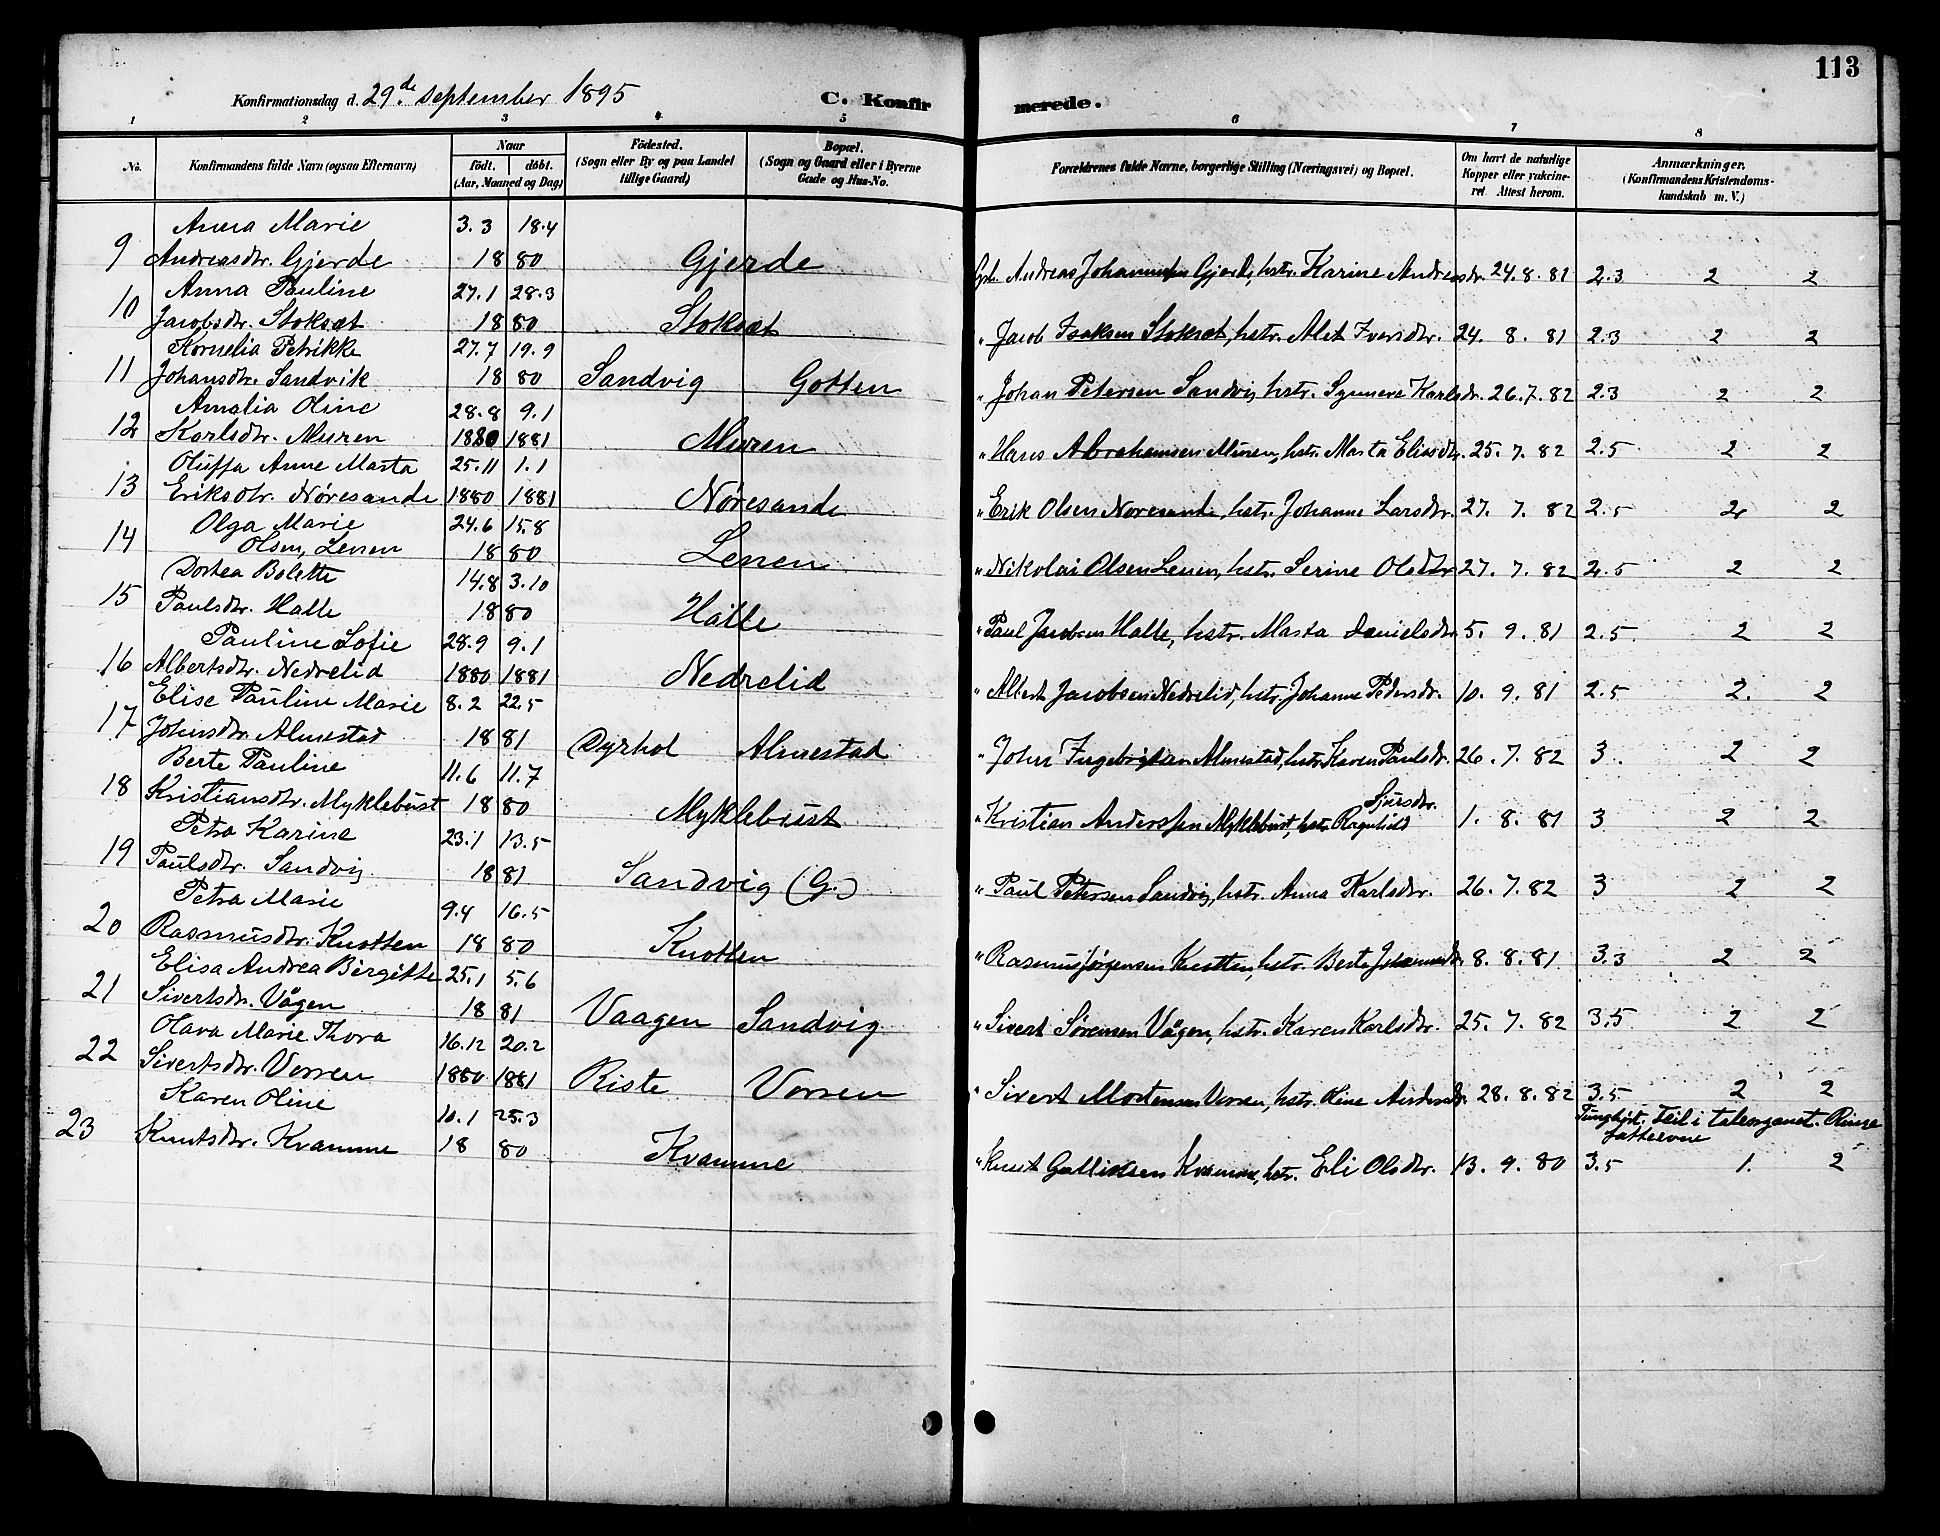 113
Konfirmationsdag d. 29.de september 1895 C. Konfirmerede.
1 2 3 4 5 6 7 8
No. Konfirmandens fulde Navn (ogsaa Efternavn) Naar født. døbt. (Aar, Maaned og Dag) Fødested. (Sogn eller By og paa Landet tillige Gaard) Bopæl. (Sogn og Gaard eller i Byerne Gade og Hus-No. Forældrenes fulde Navne, borgerlige Stilling (Næringsvei) og Bopæl. Om havt de naturlige Kopper eller vakcineret Attest herom. Anmærkninger. (Konfirmandens Kristendomskundskab m. V.)
Anna Marie 3.3 18.4
9 Andreasdtr. Gjerde 1880 Gjerde Gbr. Andreas Johannessen Gjerde, hstr. Karine Andreasdr. 24.8.81 2.3 2 2
Anna Pauline 27.1 28.3
10 Jacobsdtr. Stokset 1880 Stokset " Jacob Isaksen Stokset, hstr. Alet Iversdtr. 24. 8. 81 2.3 2 2
Kornelia Petrikke 27.7 19.9
11 Johansdtr. Sandvik 1880 Sandvig Gotten " Johan Petersen Sandvig hstr. Synneve Karlsdr. 26.7.82 2.3 2 2
Amalia Oline 28.8 9.1
12 Karlsdtr. Muren 1880 1881 Muren " Hans Abrahamsen Muren, hstr. Marta Eliasdtr. 25. 7. 82 2.5 2 2
Oluffa Anne Marta 25.11 1.1
13 Eriksdtr. Nøresande 1880 1881 Nøresande " Erik Olsen Nøresande, hstr. Johanne Larsdtr. 27. 7. 82 2.5 2 2
Olga Marie 24.6 15.8
14 Olsen, Lenen 1880 Lenen " Nikolai Olsen Lenen, hstr. Serine Olsdtr 27. 7. 82 2.5 2 2
Dortea Bolette 14.8 3.10
15 Paulsdtr. Halle 1880 Halle " Paul Jacobsen Halle, hstr. Marta Danielsdtr 5. 9. 81 2.5 2 2
Pauline Sofie 28.9 9.1
16 Albertsdtr. Nedrelid 1880 1881 Nedrelid " Albert Jacobsen Nedrelid, hstr. Johanne Pedersdr. 10. 9. 81 2.5 2. 2
Elise Pauline Marie 8.2 22.5
17 Johnsdtr. Almestad 1881 Dyrhol Almestad " John Ingebrigtsen Almestad, hstr. Karen Paulsdr. 26. 7. 82 3. 2 2
Berte Pauline 11.6 11.7
18 Kristiansdtr. Myklebust 1880 Myklebust " Kristian Anderssen Myklebust, hstr. Ragnhild Sjursdtr. 1. 8. 81 3 2 2
Petra Karine 23.1 13.5
19 Paulsdtr. Sandvig 1881 Sandvig (G.) " Paul Petersen Sandvig, hstr. Anna Karlsdtr. 26. 7. 82 3 2 2
Petra Marie 9.4 16.5
20 Rasmusdtr. Knotten 1880 Knotten " Rasmus Jørgensen Knotten, hstr. Berte 8. 8. 81 3.3 2 2
Elisa Andrea Birgitte 25.1 5.6
21 Sivertsdr. Vågen 1881 Vaagen Sandvig " Sivert Sørensen Vågen, hstr. Karen Karlsdtr. 25. 7. 82 3.5 2 2
Olava Marie Thora 16.12 20.2
22 Sivertsdtr. Vorren 1880 1881 Riste Vorren " Sivert Mortensen Vorren, hstr. Oline 28. 8. 82 3.5 2 2
Karen Oline 10.1 25.3 Tunghørt. Feil i taleorganet. Ringe fatteevne
23 Knutsdtr. Kvamme 1880 Kvamme " Knut Kvamme, hstr. Eli Olsdtr. 13. 9. 80 3.5 1. 2